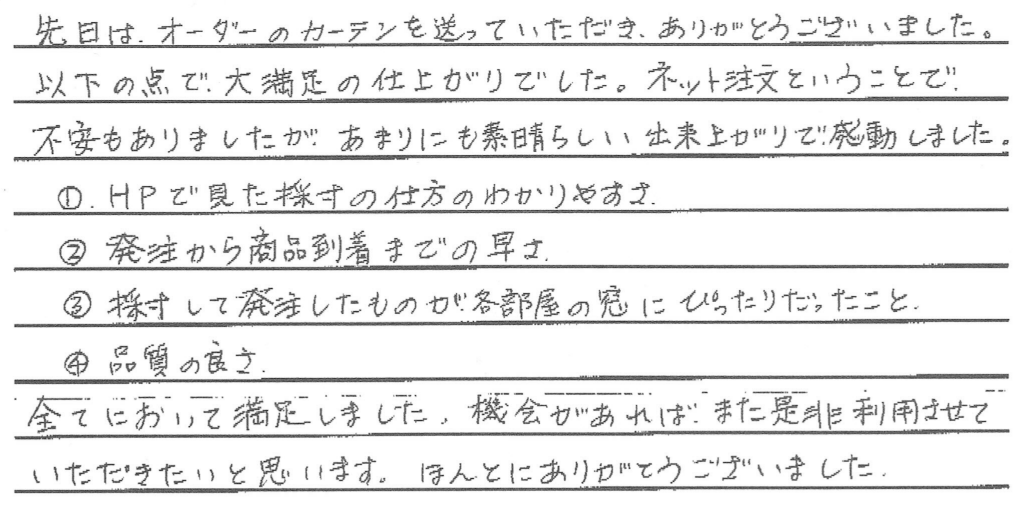 先日は、オーダーのカーテンを送っていただき、ありがとうございました。
以下の点で、大満足の仕上がりでした。ネット注文ということで、
不安もありましたが、あまりにも素晴らしい出来上がりで、感動しました。
①. HPで見た採寸の仕方のわかりやすさ.
② 発注から商品到着までの早さ.
③ 採寸して発注したものが、各部屋の窓にぴったりだったこと.
④ 品質の良さ.
全てにおいて満足しました。機会があれば、また是非利用させて
いただきたいと思います。ほんとにありがとうございました.